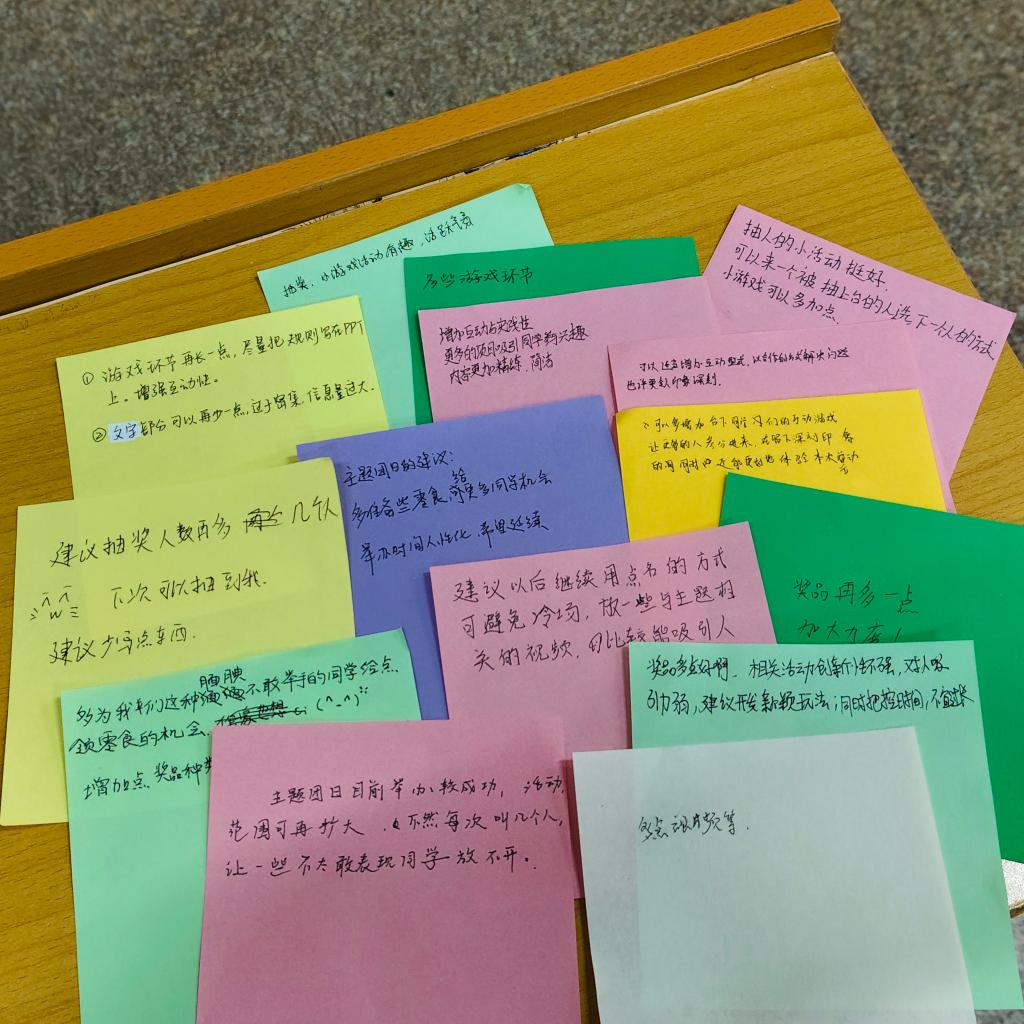 抽奖、小游戏活动有趣，活跃气氛
多些游戏环节
抽人的小活动挺好.
可以来一个被抽上台的人选下一个人的方式
小游戏可以多加点.
增加互动与实践性
更多的项目吸引同学的兴趣
内容更加精练、简洁
可以适当增加互动型式，以合作的方式解决问题
也许更加印象深刻.
① 游戏环节再长一点，尽量把规则写在PPT
上。增强互动性.
② 文字部分可以再少一点，过于密集，信息量过大.
可以多增加台下同学们的互动游戏
让更多的人参与进来，在留下深刻印象
的同时也还能更好地体验本次活动
主题团日的建议:
多准备些零食给更多同学机会
举办时间人性化，希望延续
建议抽奖人数再多几个
下次可以抽到我.
建议少写点东西.
建议以后继续用点名的方式
可避免冷场，放一些与主题相
关的视频，可比较能吸引人
奖品再多一点
加大力度!
多为我们这种腼腆不敢举手的同学给点
领零食的机会. (^_^)
增加点奖品种类
奖品多些好啊. 相关活动创新性不强，对人吸
引力弱，建议开发新颖玩法；同时把控时间，不宜过长
主题团日目前举办较成功，活动
范围可再扩大，不然每次叫几个人，
让一些不太敢表现同学放不开。
多点视频等.